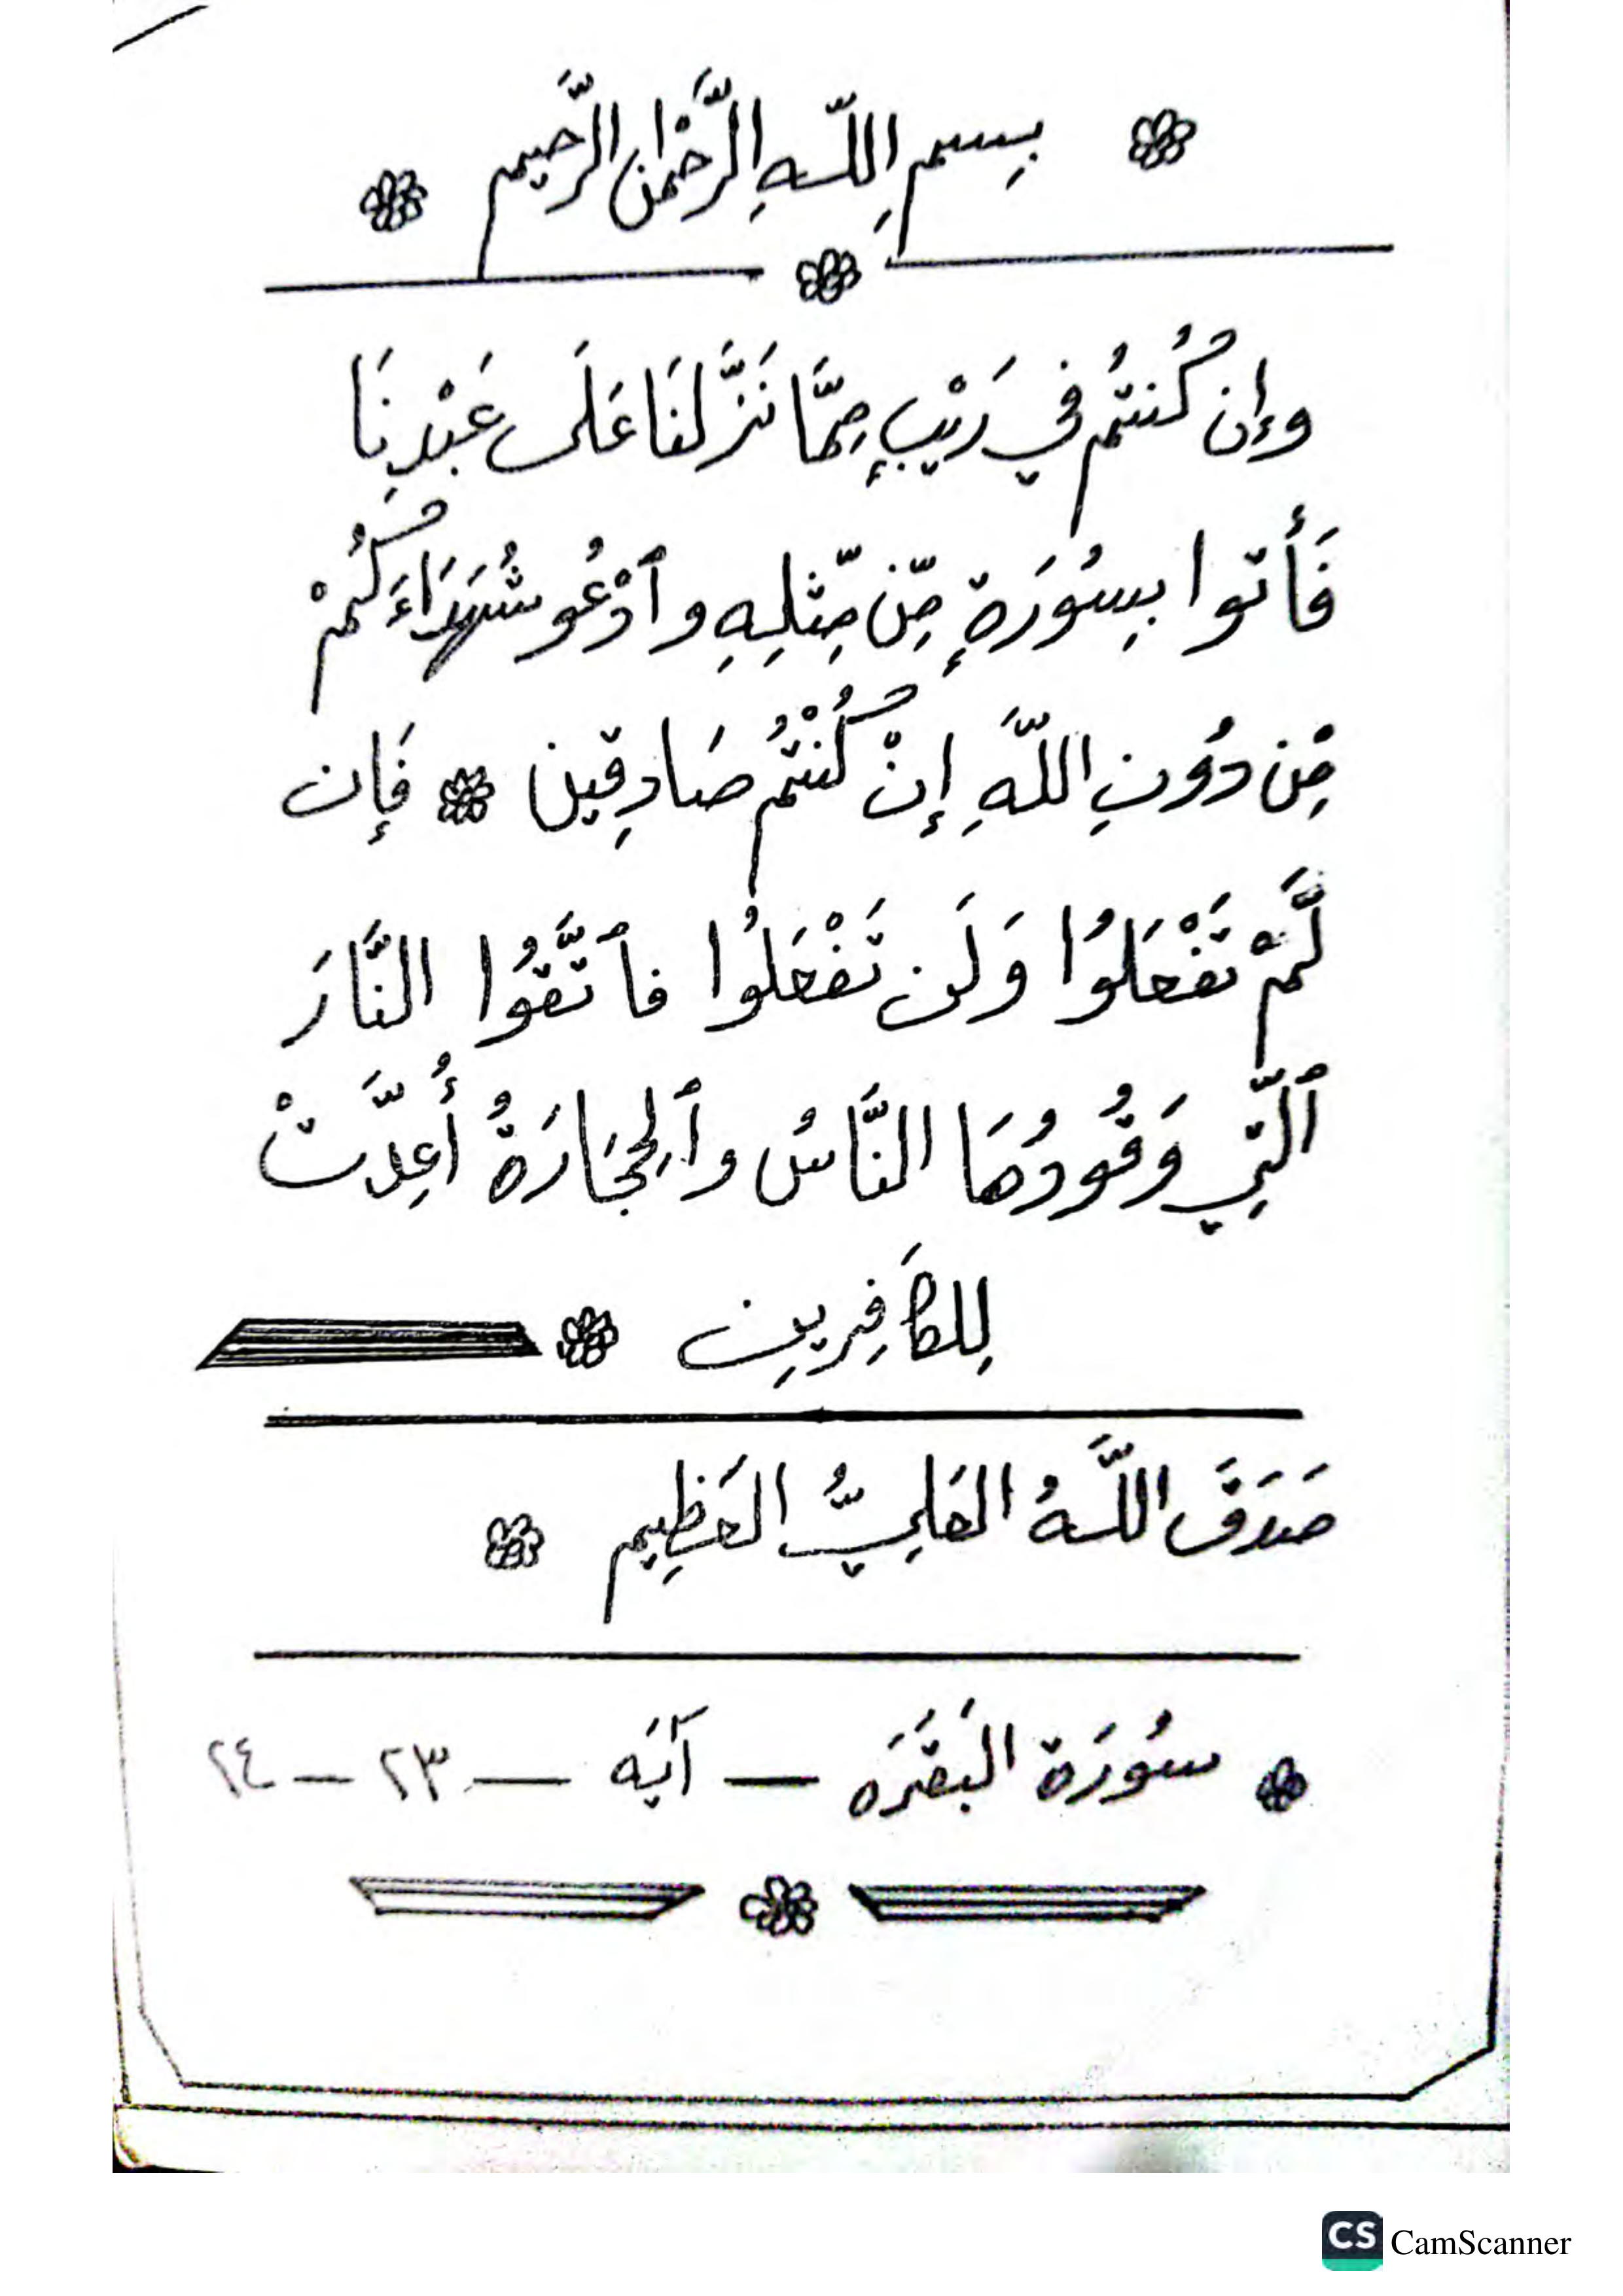 بِسمِ اللَّهِ الرَّحْمٰنِ الرَّحِيم
وإن كُنتُم في رَيْبٍ مِمَّا نَزَّلنَا عَلَى عَبْدِنَا
فَأْتوا بِسُورَةٍ مِّن مِّثلِهِ وٱدْعُو شُهَدَاءَكُمْ
مِّن دُونِ اللَّهِ إِنْ كُنْتُم صَادِقِين فَإِن
لَّمْ تَفْعَلُوا وَلَن تَفْعَلُوا فٱتَّقُوا النَّارَ
ٱلَّتِي وَقُودُهَا النَّاسُ وٱلحِجَارَةُ أُعِدَّتْ
لِلكَافِرِينِ
صَدَقَ اللَّهُ العَلِيُّ العَظِيم
سُورَة البَقَرَه — آيَه — ٢٣ — ٢٤
CS CamScanner